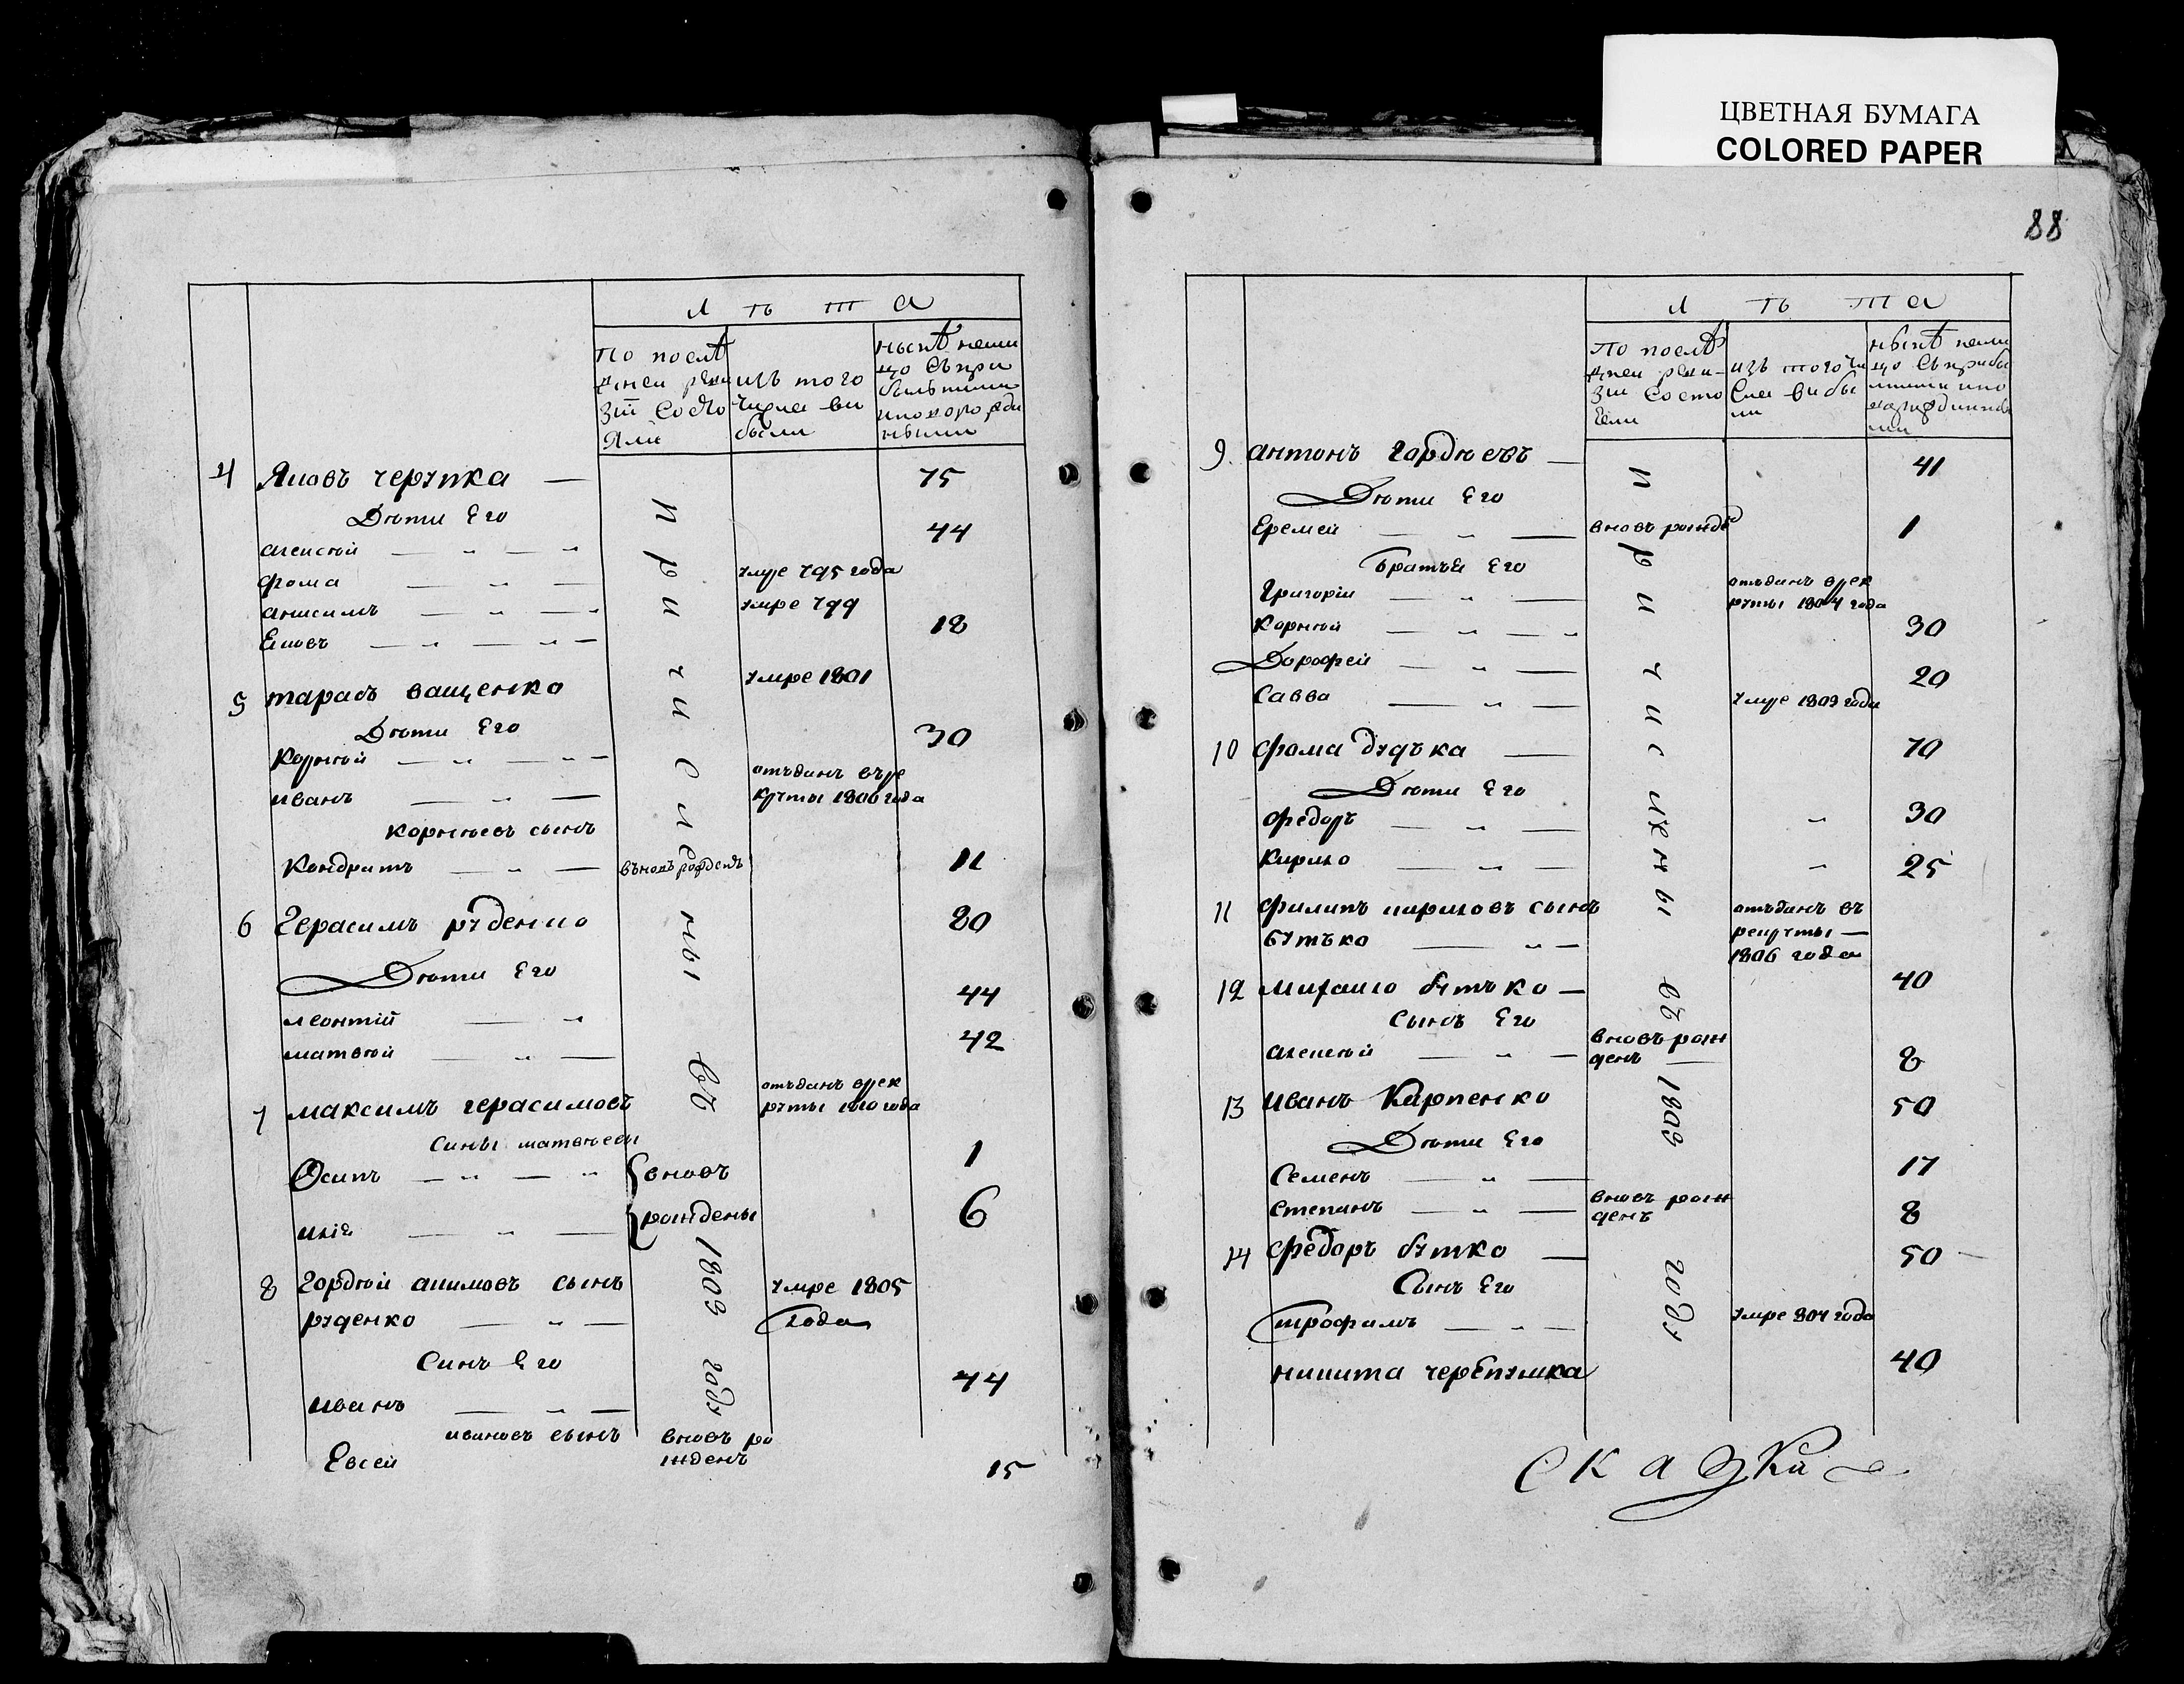 ЦВЕТНАЯ БУМАГА
COLORED PAPER
Л ѣ т а
По послѣ дней реви зіи состо яли
изъ того числа вы были
нынѣ на ли цо съ при бывшими и новорожде нными
4 Яковъ черѵпка — 75
Дѣти Его
алексѣй — „ — „ 44
фома — „ — ѵмре 795 года
анисимъ — „ — „ ѵмре 799
Яковъ — „ — „ — 18
5 тарасъ ващенко ѵмре 1801
Дѣти Его
Корнѣй — „ — „ — 30
иванъ — „ — отъданъ въ ре
крѵты 1806 года
корнѣевъ сынъ
Кондратъ — „ — въновъ рожденъ 11
6 Герасимъ рѵденко 80
Дѣти Его
леонтій — „ 44
матвѣй — „ — 42
7 максимъ герасимовъ отъданъ в рек
рѵты 1810 года
сины матвѣевы
Осипъ — „ — „ вновъ 1
илія — „ — рождены 6
8 Гордѣй акимовъ сынъ ѵмре 1805
рѵденко — „ — года
Синъ Его
иванъ — „ — 44
ивановъ сынъ вновъ ро
Евсей жденъ 15
п р и ч и с л е ны въ 1803 годѵ
88
Л ѣ т а
По послѣ дней реви зіи состо яли
изъ того чи сла выбы ли
нынѣ на ли цо съ прибы
9. антонъ гордѣевъ — 41
Дѣти Его
Еремей — „ — вновъ рожде 1
братья Его
Григорій — „ — отъданъ в рек
рѵты 1804 года
корнѣй — „ — „ 30
Дорофей — „ — 20
Савва — „ — ѵмре 1809 года
10 фома дѵдъка — 70
Дѣти Его
федоръ — „ — „ 30
Кирило — „ — „ 25
11 филипъ кириловъ сынъ отъданъ въ
бѵтъко — „ — рекрѵты —
1806 года
12 михаило бѵтъко — 40
сынъ Его
алексѣй — „ — вновъ рож
денъ — 8
13 иванъ Карпенко 50
Дѣти Его
Семенъ — „ — 17
степанъ — „ — вновъ рож
денъ 8
14 федоръ бѵтко — 50
Сынъ Его
трофимъ — „ — ѵмре 804 года
никита черепѵшка 40
п р и ч и с лены въ 1803 годѵ
сказки